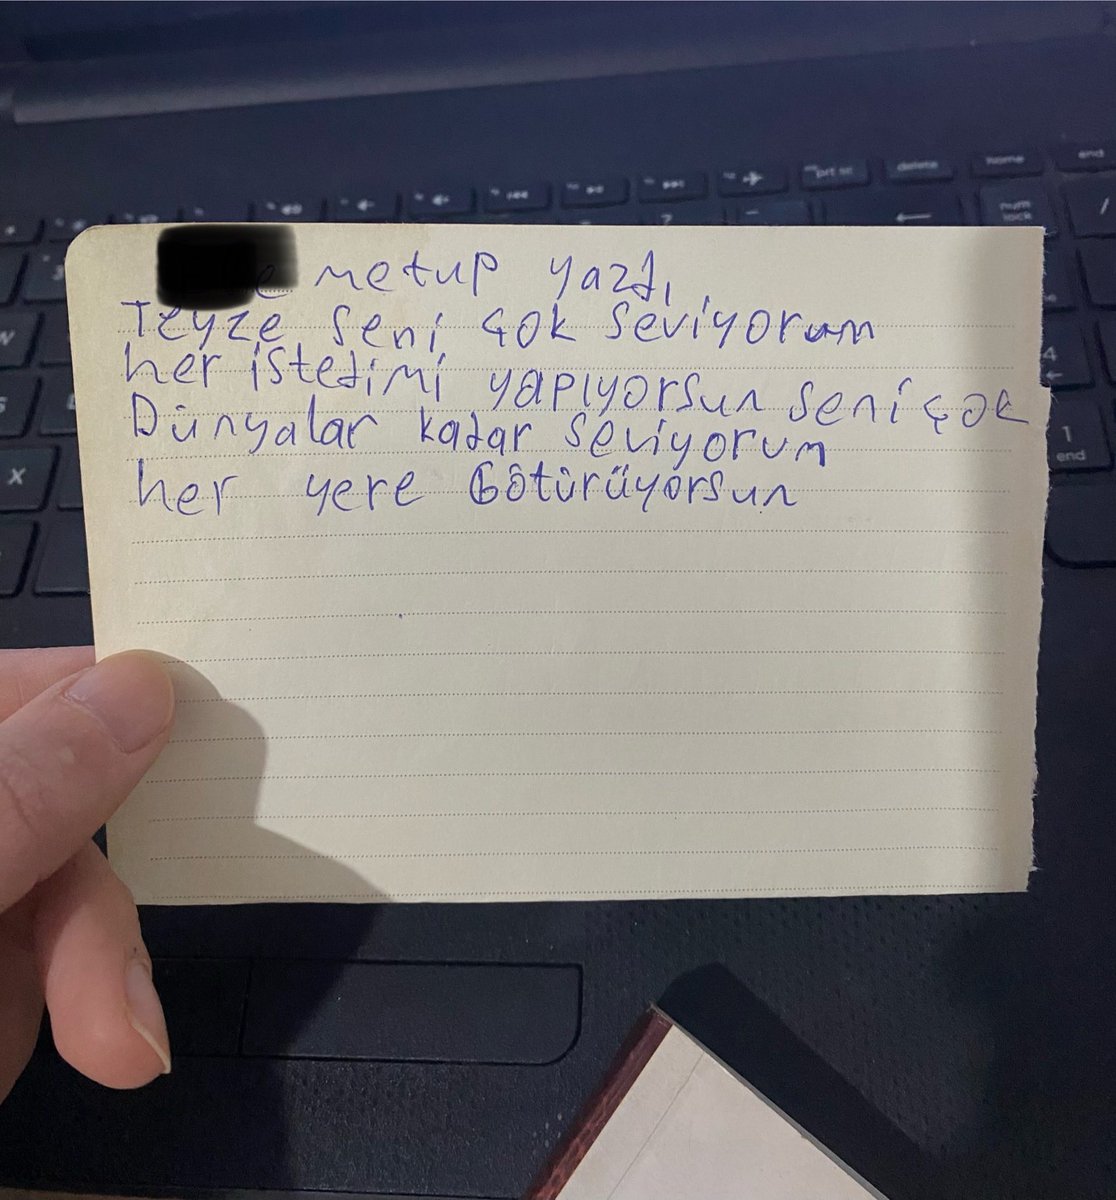 metup yazdı,
Teyze seni çok seviyorum
her istedimi yapıyorsun seni çok
Dünyalar kadar seviyorum
her yere Götürüyorsun
prt sc
delete
home
end
num
lock
?
/
4
1
end
X